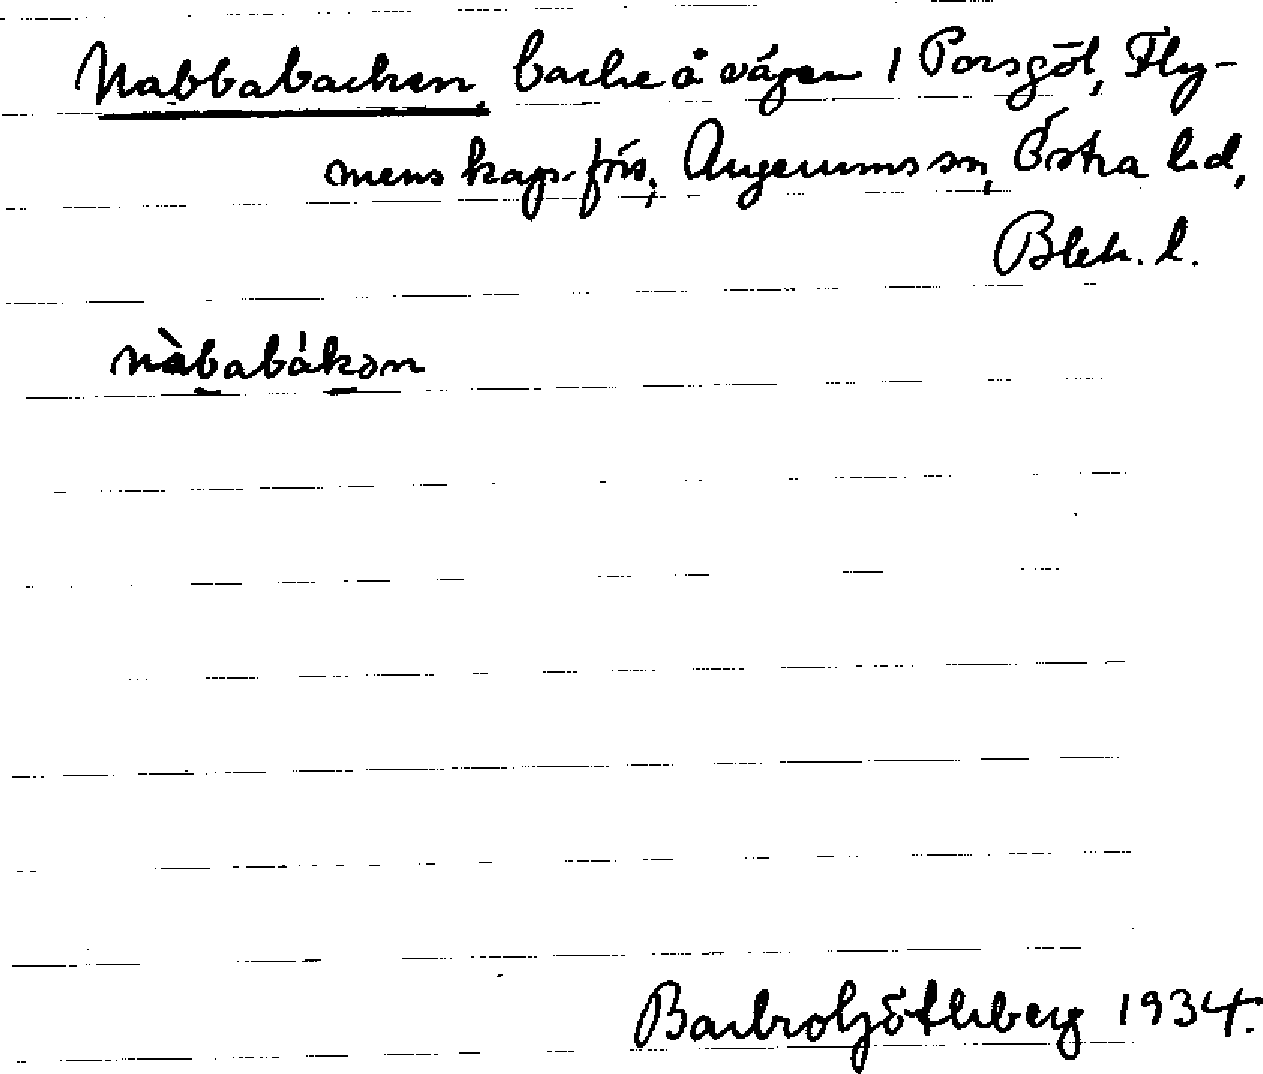 Nabbabacken, backe å vägen i Porsgöl, Fly-
mens kap.förs., Augerums sn, Östra hd,
Blek. l.
nàbabákən
Barbro Götherberg 1934.